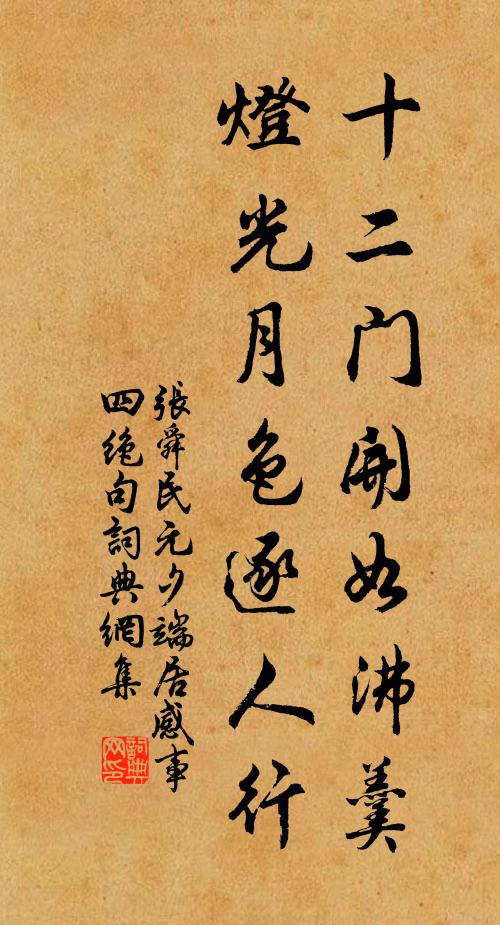 十二门開如沸羹
燈光月色逐人行
張舜民元夕端居感事
四絶句詞典網集
詞典网印